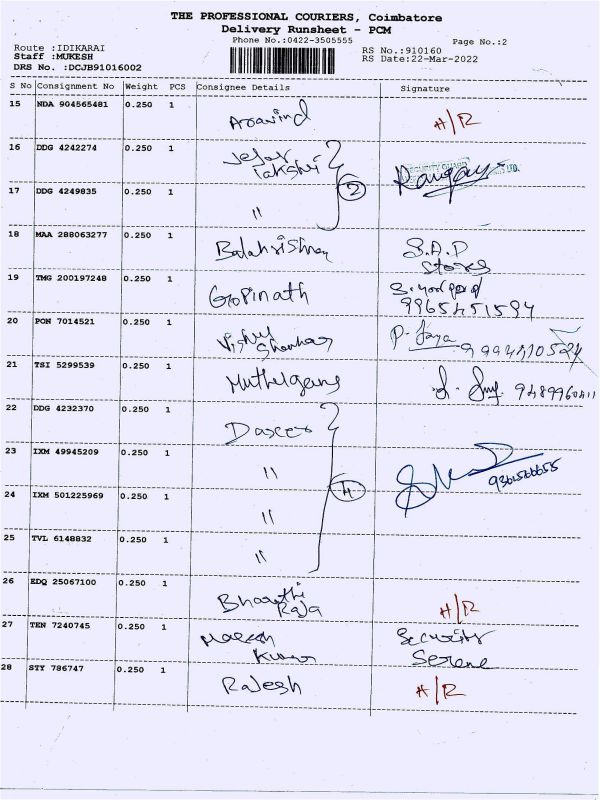 THE PROFESSIONAL COURIERS, Coimbatore
Delivery Runsheet - PCM
Phone No.:0422-3505555
Page No.:2
Route :IDIKARAI
Staff :MUKESH
DRS No. :DCJB91016002
RS No.:910160
RS Date:22-Mar-2022
S No Consignment No Weight PCS Consignee Details Signature
15 NDA 904565481 0.250 1 Aravind H/R
16 DDG 4242274 0.250 1
SECURITY GUARD
17 DDG 4249835 0.250 1 " 2
18 MAA 288063277 0.250 1 Balakrishnan S.A.P
Stores
19 TMG 200197248 0.250 1 Gopinath
9965451594
20 PON 7014521 0.250 1 Vishnu P. Jaya
Shankar
21 TSI 5299539 0.250 1 9489960411
22 DDG 4232370 0.250 1
23 IXM 49945209 0.250 1 "
24 IXM 501225969 0.250 1 " 4
25 TVL 6148832 0.250 1 "
26 EDQ 25067100 0.250 1 Bharathi
Raja H/R
27 TEN 7240745 0.250 1 Security
Kumar Serene
28 STY 786747 0.250 1 Rajesh H/R